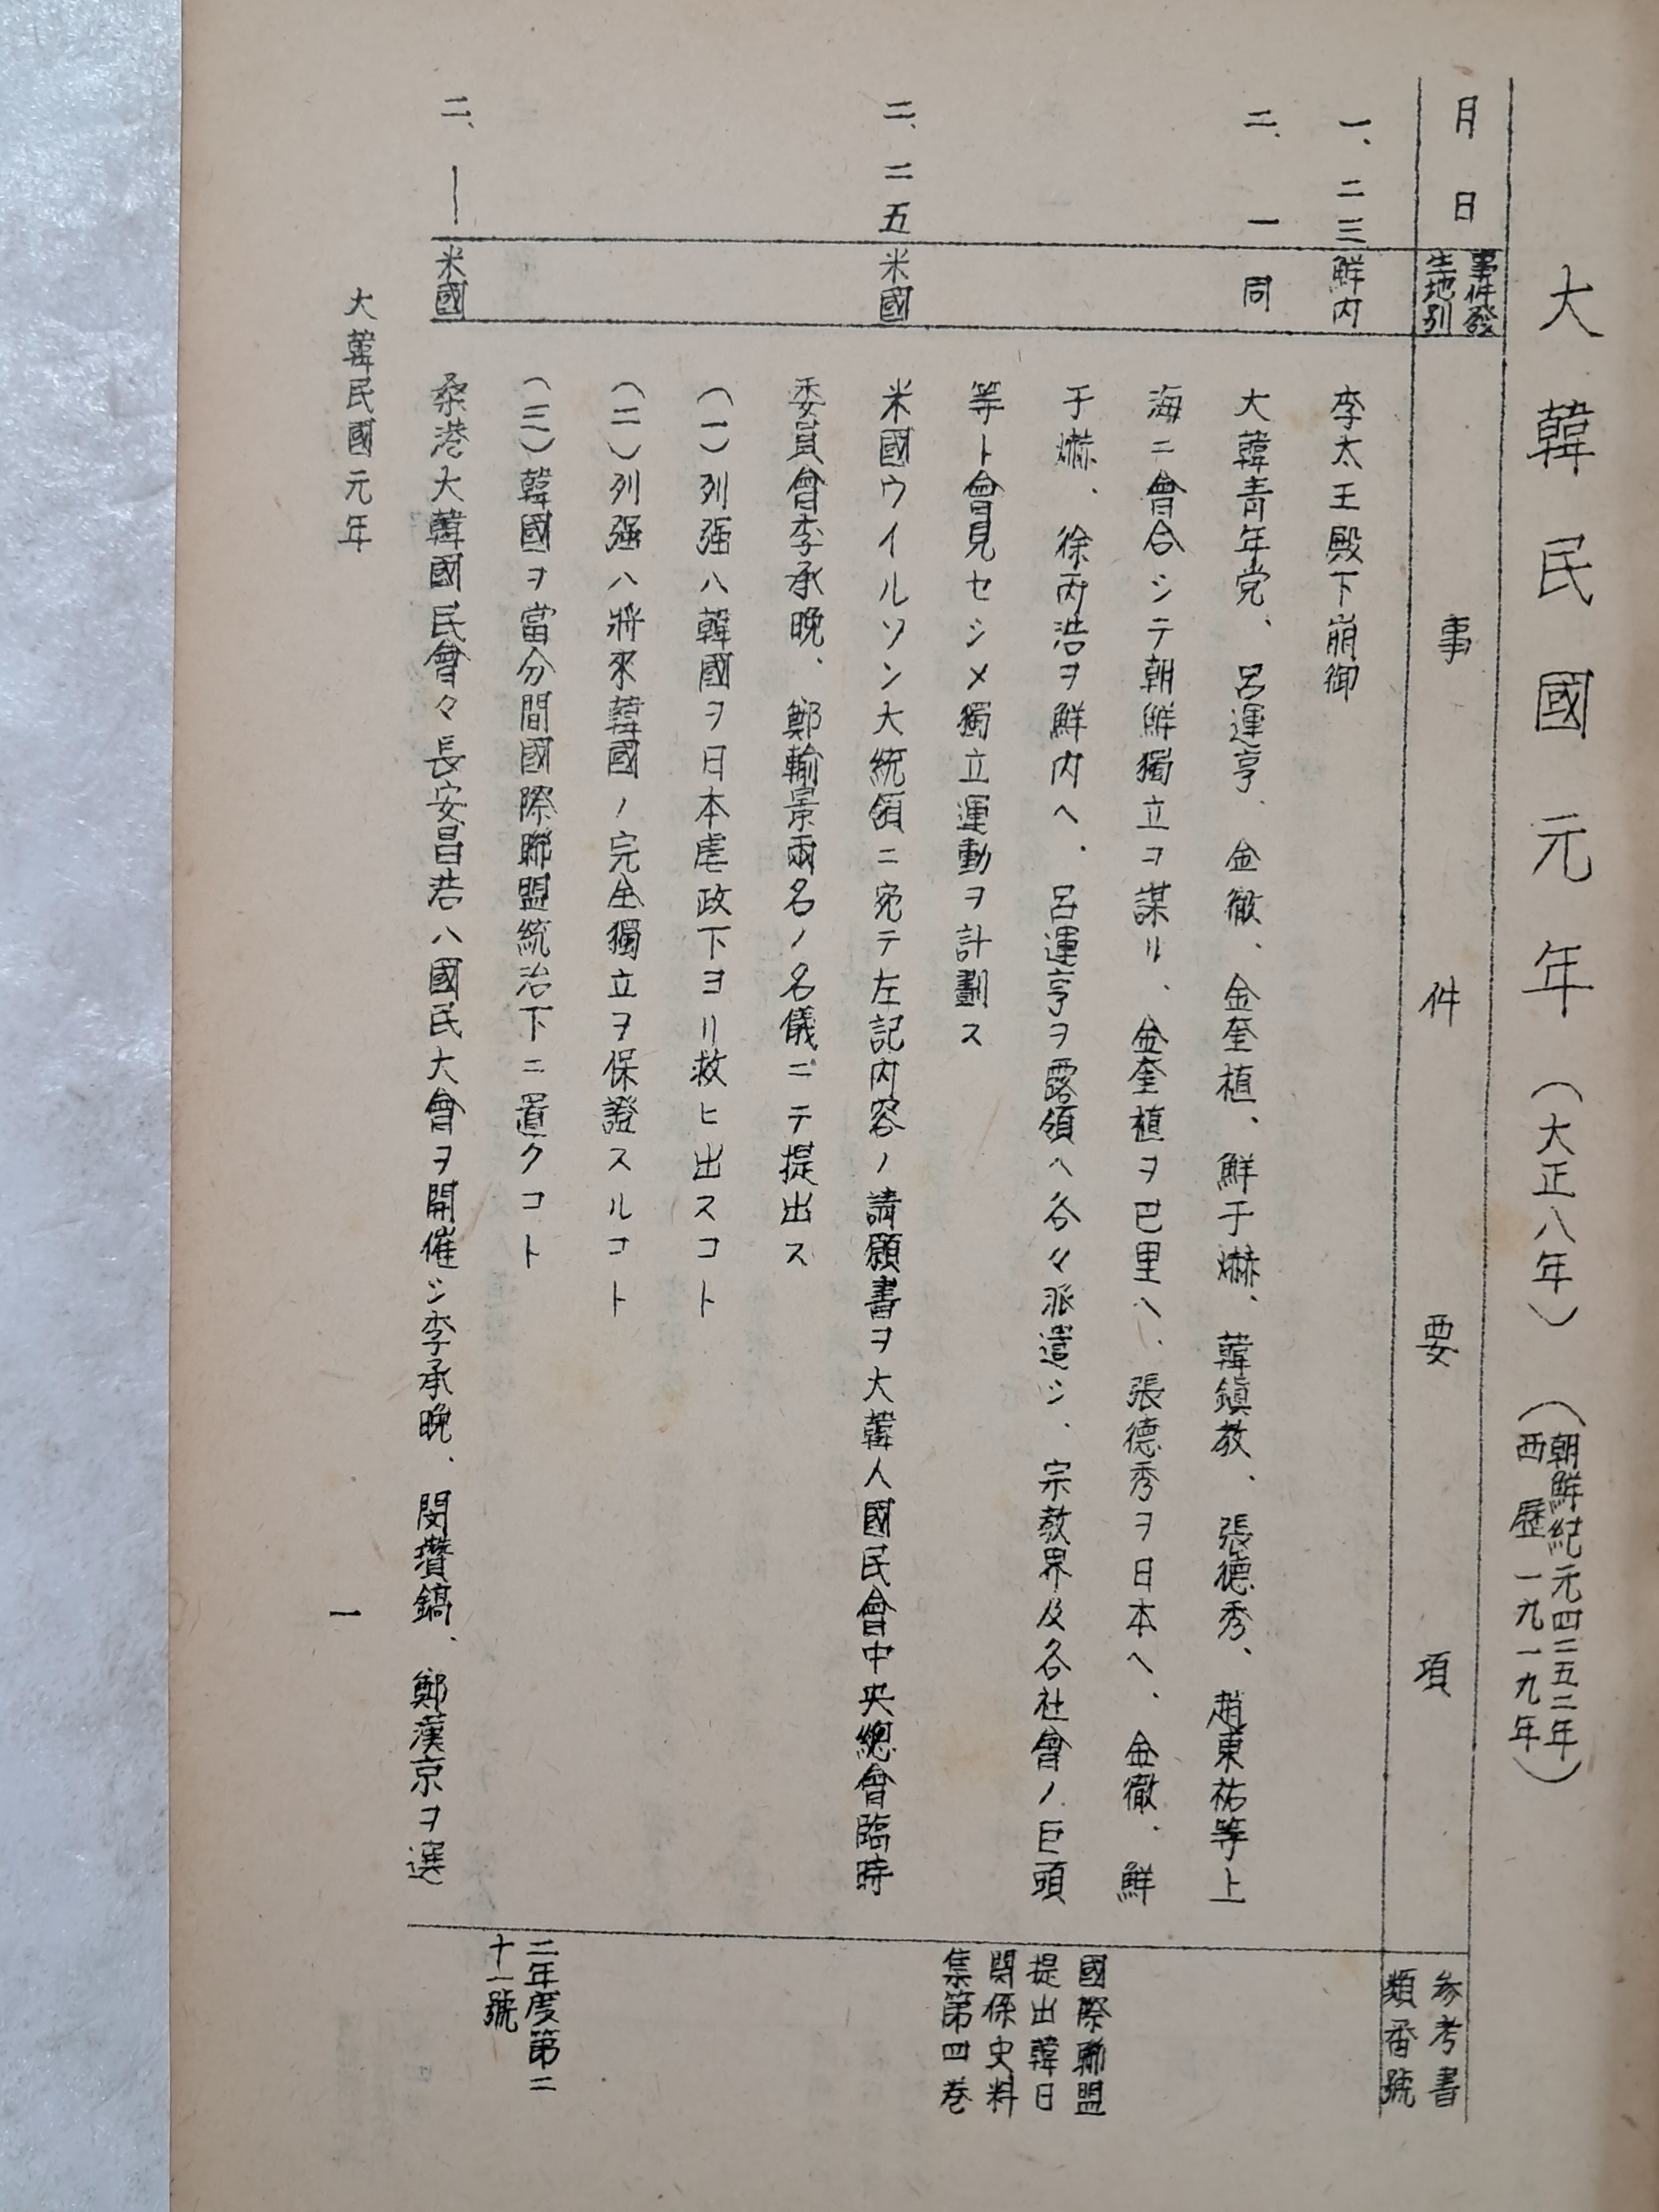 大韓民國元年(大正八年)(朝鮮紀元四二五二年
西歷一九一九年)
月日
事件發
生地別
事件要項
參考書
類番號
一、二三
鮮内
李太王殿下崩御
二、一
同
大韓青年党、呂運亨、金徹、金奎植、鮮于爀、韓鎭教、張德秀、趙東祐等上
海ニ會合シテ朝鮮獨立ヲ謀リ、金奎植ヲ巴里ヘ、張德秀ヲ日本ヘ、金徹、鮮
于爀、徐丙浩ヲ鮮内ヘ、呂運亨ヲ露領ヘ各々派遣シ、宗教界及各社會ノ巨頭
等ト會見セシメ獨立運動ヲ計劃ス
國際聯盟
提出韓日
関係史料
集第四巻
二、二五
米國
米國ウイルソン大統領ニ宛テ左記内容ノ請願書ヲ大韓人國民會中央總會臨時
委員會李承晩、鄭輸景兩名ノ名儀ニテ提出ス
(一)列强ハ韓國ヲ日本虐政下ヨリ救ヒ出スコト
(二)列强ハ將來韓國ノ完全獨立ヲ保證スルコト
(三)韓國ヲ當分間國際聯盟統治下ニ置クコト
二年度第二
十一號
二、—
米國
桑港大韓國民會々長安昌浩ハ國民大會ヲ開催シ李承晩、閔瓚鎬、鄭漢京ヲ選
大韓民國元年
一